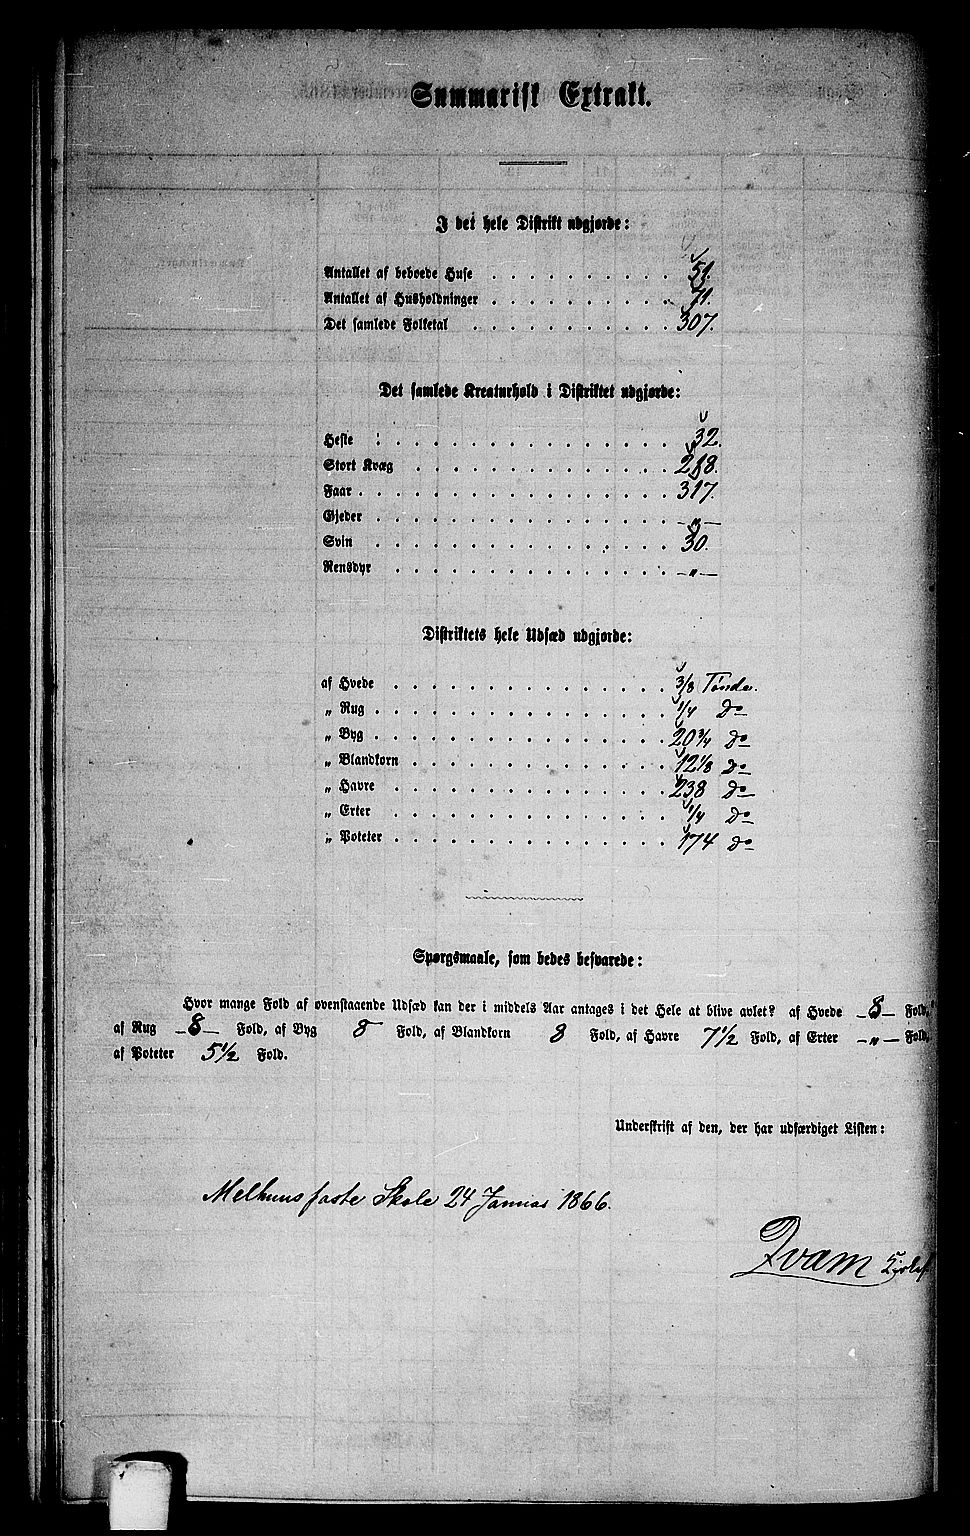 Summarisk Extrakt.
I det hele Distrikt udgjorde:
Antallet af beboede Huse . . . . . . . . . . 51.
Antallet af Husholdninger . . . . . . . . . . 71.
Det samlede Folketal . . . . . . . . . . . 307.
Det samlede Kreaturhold i Distriktet udgjorde:
Heste . . . . . . . . . . . . . . . . 32.
Stort Kvæg . . . . . . . . . . . . . . 218.
Faar . . . . . . . . . . . . . . . . . 317.
Gjeder . . . . . . . . . . . . . . . . —„—
Svin . . . . . . . . . . . . . . . . 30.
Rensdyr . . . . . . . . . . . . . . . —„—
Distriktets hele Udsæd udgjorde:
af Hvede . . . . . . . . . . . . . . . 3/8 Tønder.
„ Rug . . . . . . . . . . . . . . . . 1/4 Do
„ Byg . . . . . . . . . . . . . . . . 20 3/4 Do
„ Blandkorn . . . . . . . . . . . . . . 12 1/8 Do
„ Havre . . . . . . . . . . . . . . . 238 Do
„ Erter . . . . . . . . . . . . . . . 1/4 Do
„ Poteter . . . . . . . . . . . . . . . 174 Do
Spørgsmaale, som bedes besvarede:
Hvor mange Fold af ovenstaaende Udsæd kan der i middels Aar antages i det Hele at blive avlet? af Hvede —8— Fold,
af Rug —8— Fold, af Byg 8 Fold, af Blandkorn 8 Fold, af Havre 7 1/2 Fold, af Erter —„— Fold,
af Poteter 5 1/2 Fold.
Underskrift af den, der har udfærdiget Listen:
Melhuus faste Skole 24 Januar 1866.
Qvam